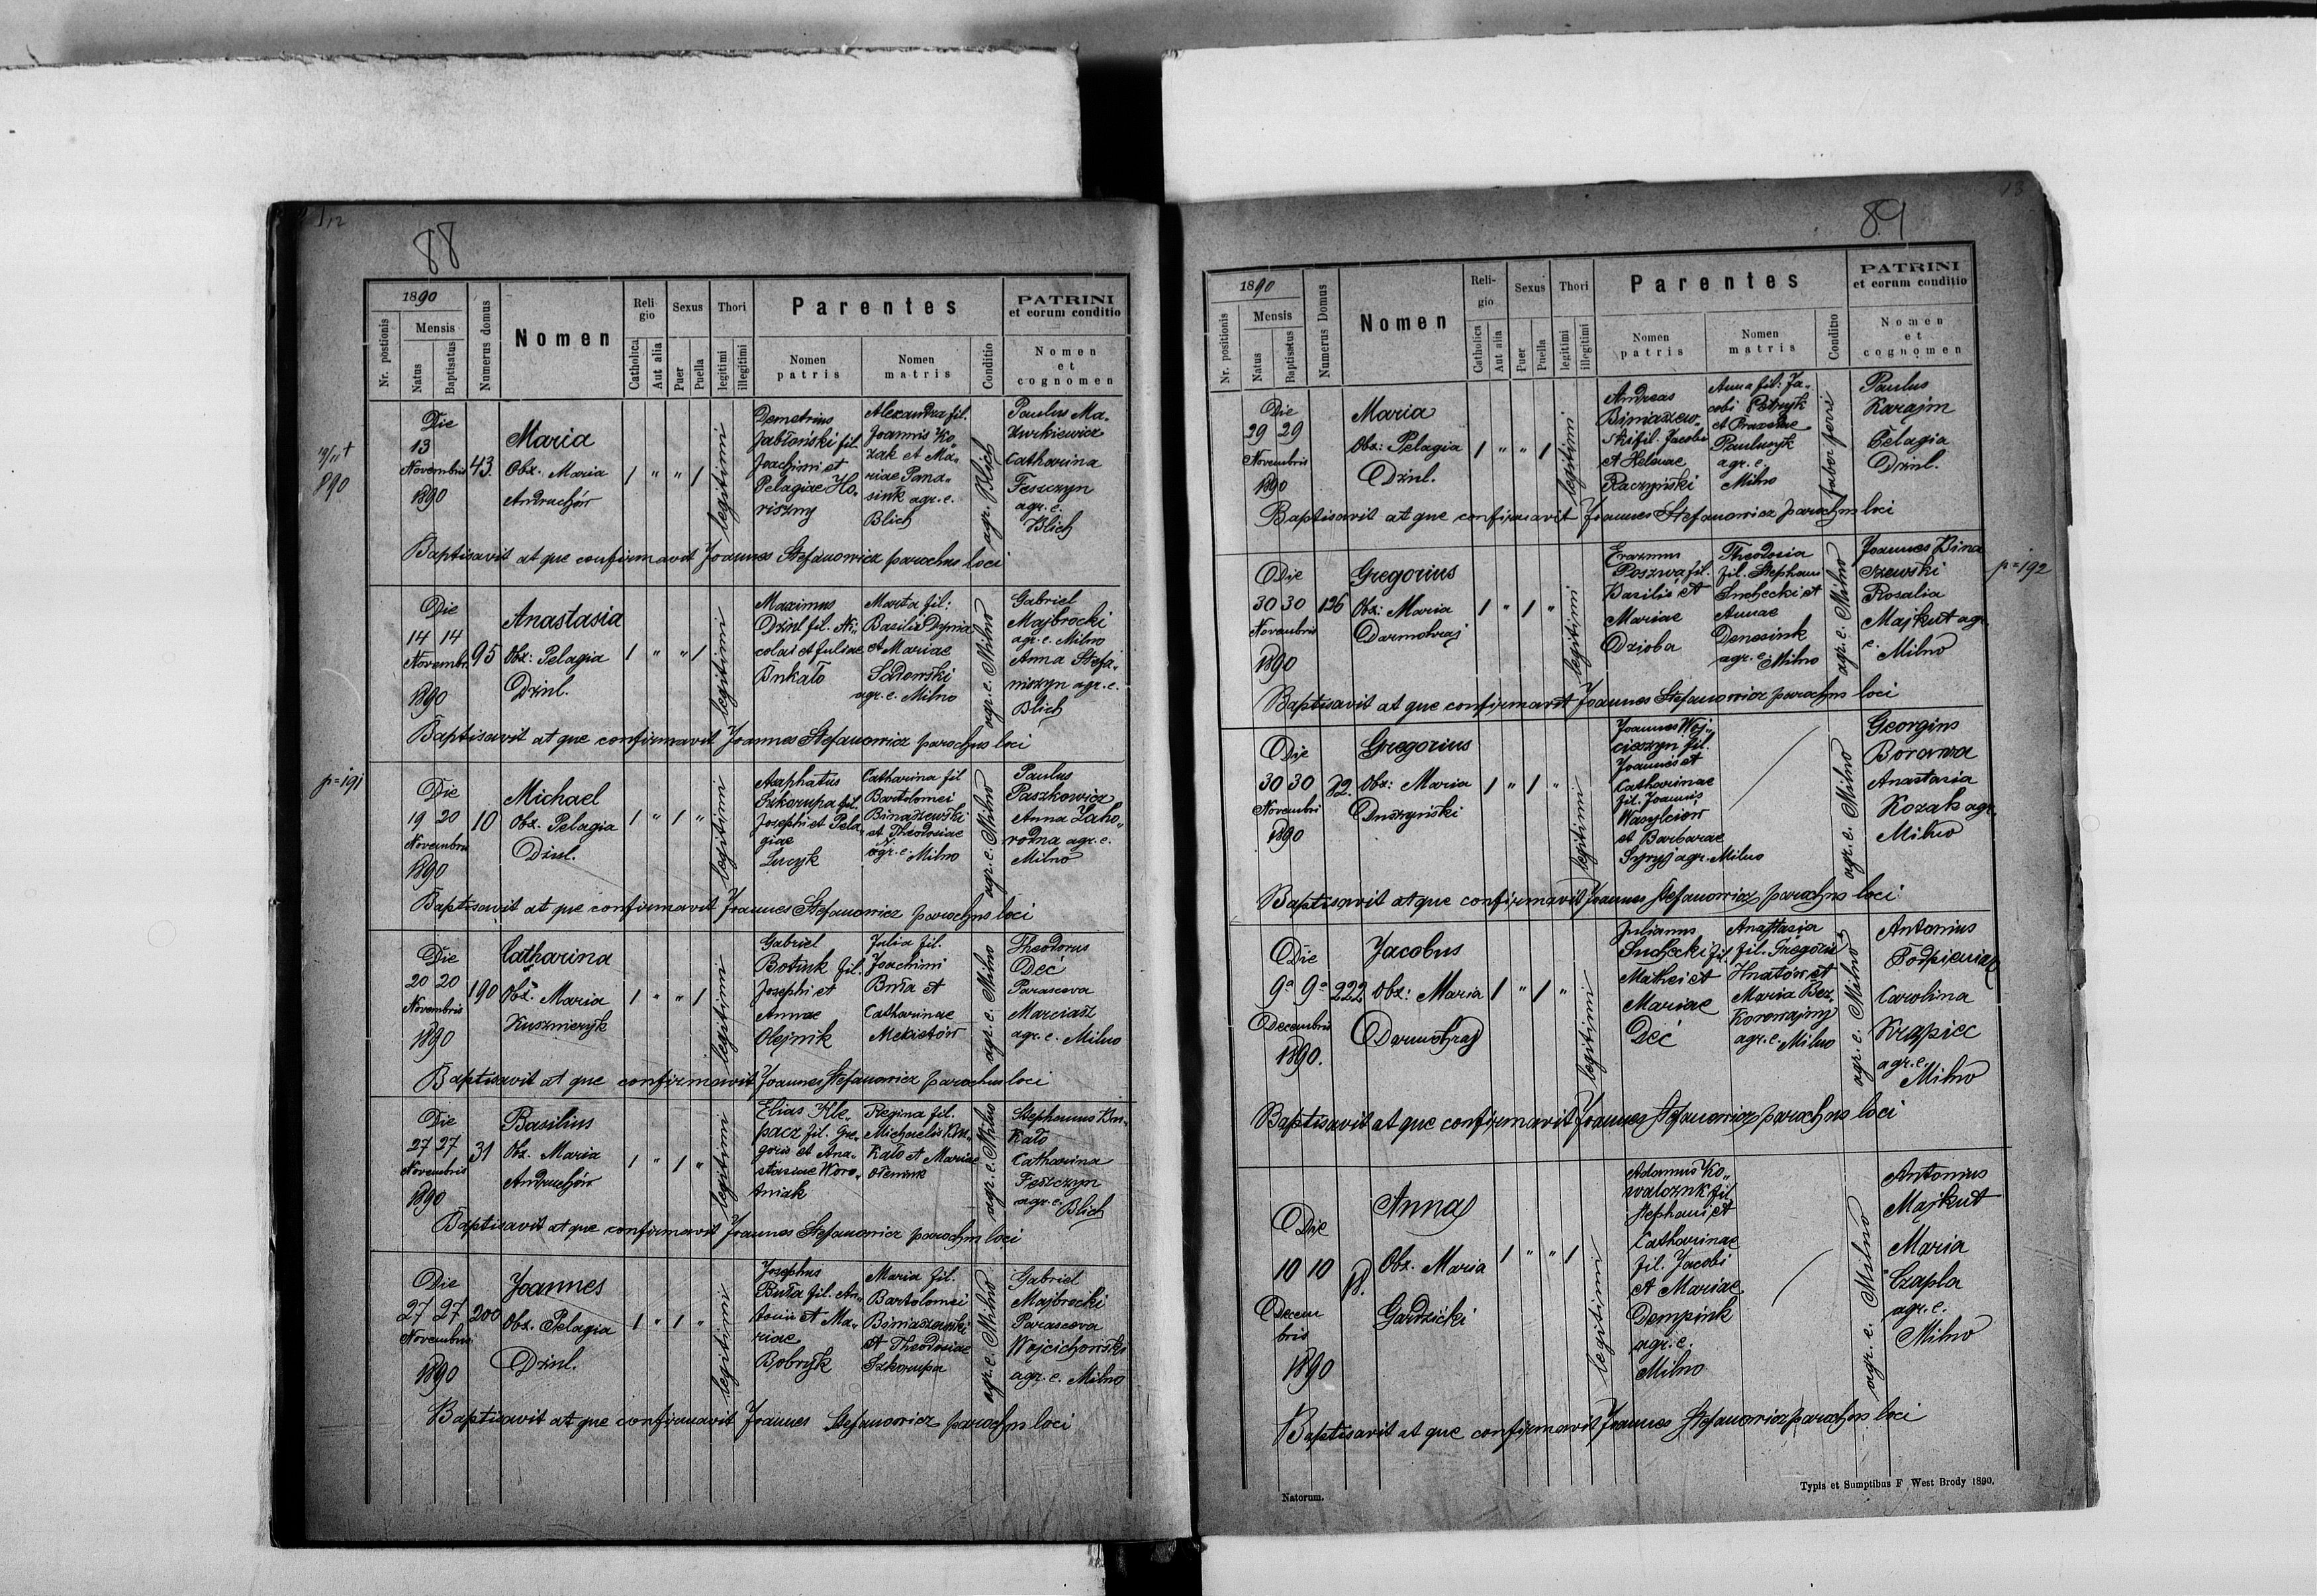 12
88
1890
Nr. postionis
Mensis
Natus
Baptisatus
Numerus domus
Nomen
Religio
Catholica
Aut alia
Sexus
Puer
Puella
Thori
legitimi
illegitimi
Parentes
Nomen patris
Nomen matris
Conditio
PATRINI
et eorum conditio
Nomen
et
cognomen
890
Die
13
Novembris
1890
43.
Maria
Obz. Maria
Andruchów
1 " " 1
legitimi
Demetrius
Jabłoński fil.
Joachimi et
Pelagiae Ho-
riszny
Alexandra fil.
Joannis Ko-
zak et Ma-
riae Pana-
siuk agr. c.
Blich
agr. Blich
Paulus Ma-
zurkiewicz
Catharina
Feszczyn
agr. c.
Blich
Baptisavit at que confirmavit Joannes Stefanowicz parochus loci
Die
14 14
Novembr.
1890
95
Anastasia
Obz: Pelagia
Dziul.
1 " " 1
legitimi
Maximus
Dziul fil. Ni-
colai et Juliae
Bukało
Marta fil:
Basilii Dynia
et Mariae
Sadowski
agr. c. Milno
agr. c. Milno
Gabriel
Majbrocki
agr. c. Milno
Anna Stefa-
niszyn agr. c.
Blich
Baptisavit at que confirmavit Joannes Stefanowicz parochus loci
p=191
Die
19 20
Novembris
1890
10
Michael
Obz. Pelagia
Dziul.
1 " 1 "
legitimi
Agaphatus
Szkorupa fil.
Josephi et Pela-
giae
Catharina fil
Bartolomei
Binaszewski
et Theodosiae
agr. c. Milno
agr. c. Milno
Paulus
Paszkowicz
Anna Zaho-
rodna agr. c.
Milno
Baptisavit at que confirmavit Joannes Stefanowicz parochus loci
Die
20 20
Novembris
1890
190
Catharina
Obz. Maria
Kusznieryk
1 " " 1
legitimi
Gabriel
Botiuk fil.
Josephi et
Annae
Olejnik
Julia fil.
Joachimi
Buła et
Catharinae
agr. c. Milno
Theodorus
Deć
Parasceva
Marciasz
agr. c. Milno
Baptisavit at que confirmavit Joannes Stefanowicz parochus loci
Die
27 27
Novembris
1890
31
Basilius
Obz. Maria
Andruchów
1 " 1 "
legitimi
Elias Kle-
pacz fil. Gre-
gorii et Ana-
stasiae Woro-
Regina fil.
Michaelis Bu-
kało et Mariae
agr. c. Milno
Stephanus Bu-
kało
Catharina
Feszczyn
agr. c. Blich
Baptisavit at que confirmavit Joannes Stefanowicz parochus loci
Die
27 27
Novembris
1890
200
Joannes
Obz. Pelagia
Dziul.
1 " 1 "
legitimi
Josephus
Buła fil. An-
tonii et Ma-
riae
Bobryk
Maria fil.
Bartolomei
Binaszewski
et Theodosiae
Szkorupa
agr. c. Milno
Gabriel
Majbrocki
Parasceva
Wojcichowski
agr. c. Milno
Baptisavit at que confirmavit Joannes Stefanowicz parochus loci
13
89
1890
Nr. positionis
Mensis
Natus
Baptisatus
Numerus Domus
Nomen
Religio
Catholica
Aut alia
Sexus
Puer
Puella
Thori
legitimi
illegitimi
Parentes
Nomen
patris
Nomen
matris
Conditio
PATRINI
et eorum conditio
Nomen
et
cognomen
Die
29 29
Novembris
1890
Maria
Obz: Pelagia
Dziul.
1 " " 1
legitimi
Andreas
Binaszew-
ski fil. Jacobi
et Helenae
Raczyński
Anna fil: Ja-
cobi Petryk
et Praxedae
agr. c.
Milno
faber ferri
Paulus
Karajm
Pelagia
Dziul.
Baptisavit at que confirmavit Joannes Stefanowicz parochus loci
p=192
Die
30 30
Novembris
1890
126
Gregorius
Obz: Maria
Darmohraj
1 " 1 "
legitimi
Erazmus
Poszwa fil.
Basilii et
Mariae
Dzioba
Theodosia
fil. Stephani
Suchecki et
Annae
agr. c. Milno
agr. c. Milno
Joannes Bina
szewski
Rosalia
Majkut agr.
c. Milno
Baptisavit at que confirmavit Joannes Stefanowicz parochus loci
Die
30 30
Novembri
1890
82.
Gregorius
Obz: Maria
Duszyński
1 " 1 "
legitimi
Joannes Woj-
cieszyn fil.
Joannis et
Catharinae
fil. Joannis
Wasylciow
et Barbarae
agr. Milno
agr. c. Milno
Georgius
Anastasia
Kozak agr.
Milno
Baptisavit at que confirmavit Joannes Stefanowicz parochus loci
Die
9a 9a
Decembris
1890.
222
Jacobus
Obz: Maria
Darmohraj
1 " 1 "
legitimi
Julianus
Suchecki fil.
Mathei et
Mariae
Deć
Anastasia
fil. Gregorii
Hnatów et
Maria Bez
agr. c. Milno
agr. c. Milno
Antonius
Carolina
Krąpiec
agr. c.
Milno
Baptisavit at que confirmavit Joannes Stefanowicz parochus loci
Die
10 10
Decem
bris
1890
18.
Anna
Obz. Maria
Gardzicki
1 " " 1
legitimi
Adamus Ko-
walczuk fil.
Stephani et
Catharinae
fil. Jacobi
et Mariae
agr. c.
Milno
agr. c. Milno
Antonius
Majkut
Maria
Czapla
agr. c.
Milno
Baptisavit at que confirmavit Joannes Stefanowicz parochus loci
Natorum.
Typis et Sumptibus F West Brody 1890.